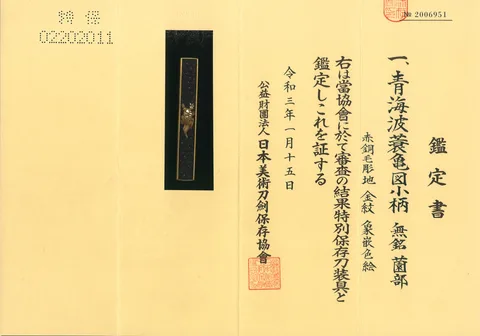 № 2006951
鑑定書
一、青海波蓑亀図小柄 無銘 薗部
赤銅毛彫地 金紋 象嵌色絵
右は當協會に於て審査の結果特別保存刀装具と
鑑定しこれを証する
令和三年一月十五日
公益財團法人日本美術刀劍保存協會
特保
02202011